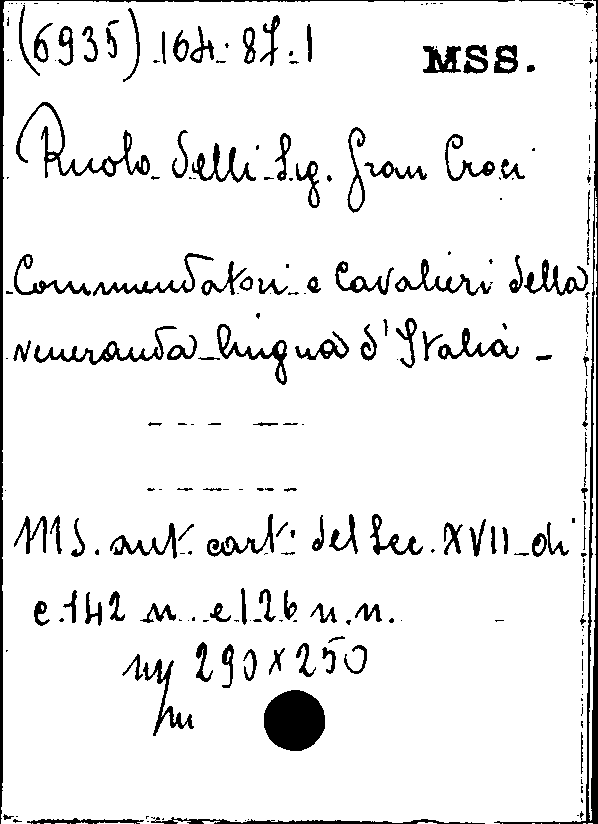 (6935) 164. 87. 1 MSS.
Ruolo delli Sig. Gran Croci
Commendatori e Cavalieri della
veneranda lingua d'Italia -
MS. aut. cart. del Sec. XVII di
c. 142 n. e 126 n.n.
290 x 250